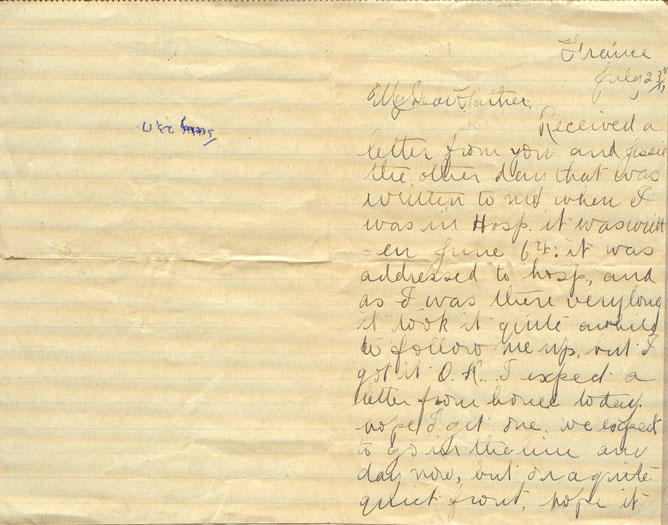 France
July 23rd
My Dear Father,
Received a
letter from you and Jessie
the other day that was
written to me when I
was in Hosp. it was writt
-en June 6th: it was
addressed to hosp, and
as I was there very long
it took it quite awhile
to follow me up, but I
got it O.K. I expect a
letter from home today.
hope I get one. we expect
to go in the line any
day now, but on a quite
quiet front, hope it